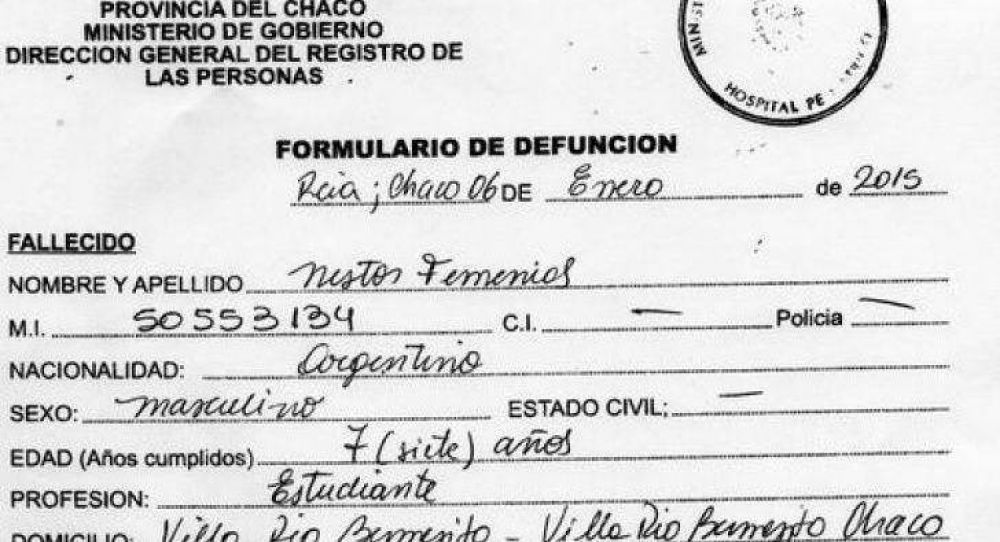 PROVINCIA DEL CHACO
MINISTERIO DE GOBIERNO
DIRECCION GENERAL DEL REGISTRO DE
LAS PERSONAS
HOSPITAL PE
FORMULARIO DE DEFUNCION
Rcia; Chaco 06 DE Enero de 2015
FALLECIDO
NOMBRE Y APELLIDO Nestor Femenias
M.I. 50553134 C.I. — Policia —
NACIONALIDAD: Argentino
SEXO: masculino ESTADO CIVIL: —
EDAD (Años cumplidos) 7 (siete) años
PROFESION: Estudiante
DOMICILIO: Villa Rio Bermejito - Villa Rio Bermejito Chaco